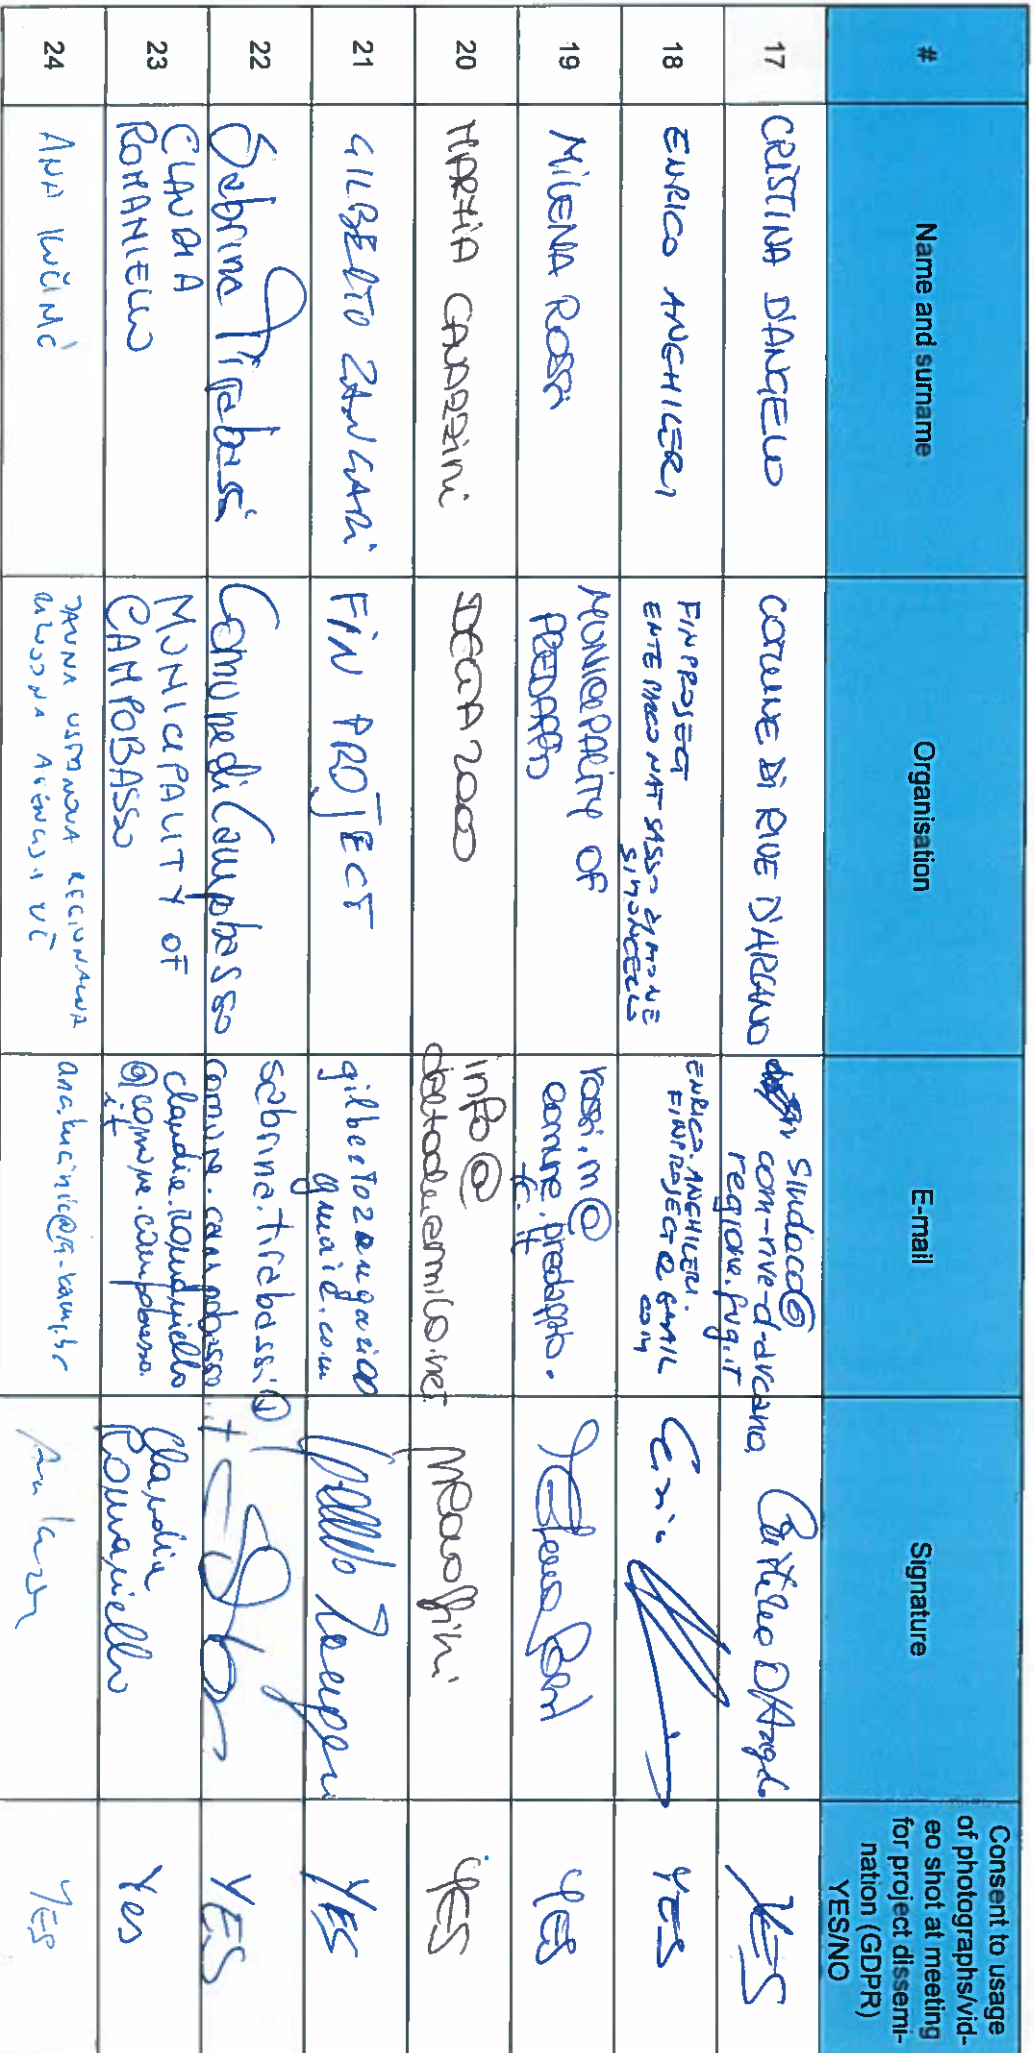 #
Name and surname
Organisation
E-mail
Signature
Consent to usage
of photographs/vid-
eo shot at meeting
for project dissemi-
nation (GDPR)
YES/NO
17
CRISTINA D'ANGELO
COMUNE DI RIVE D'ARCANO
Sindaco@
com-rive-d-arcano.
regione.fvg.it
YES
18
ENRICO ANGHILERI
FINPROJECT
ENTE PARCO NAT SASSO SIMONE
SIMONCELLO
ENRICO.ANGHILERI.
FINPROJECT@GMAIL
.com
YES
19
MILENA ROSSI
MUNICIPALITY OF
PREDAPPIO
rossi.m@
comune.predappio.
fc.it
YES
20
MARZIA
DELTA 2000
info@
YES
21
GILBERTO ZANGARI
FIN PROJECT
gilbertozangari@
gmail.com
YES
22
Sabrina Tirabassi
Comune di Campobasso
sabrina.tirabassi@
comune.campobasso.it
YES
23
CLAUDIA
ROMANIELLO
MUNICIPALITY OF
CAMPOBASSO
claudia.romaniello
@comune.campobasso.
it
Claudia
Romaniello
Yes
24
ANA
JAVNA USTANOVA REGIONALNA
YES